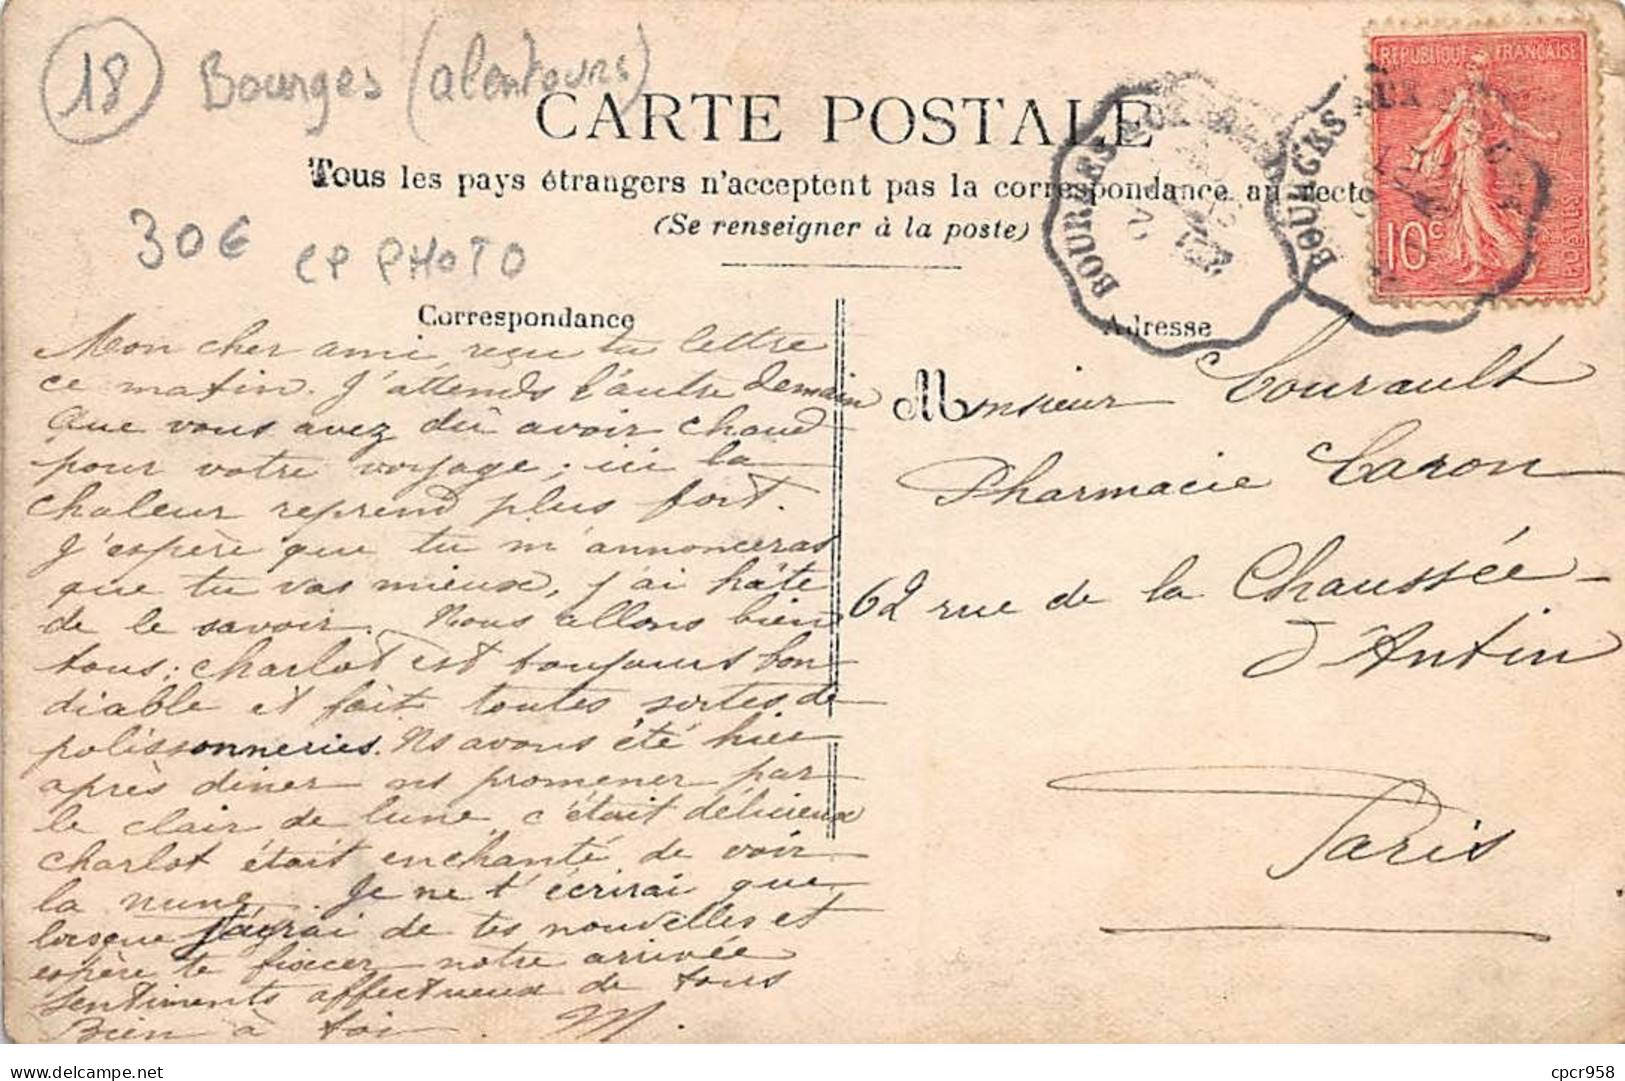 18 Bourges (alentours)
CARTE POSTALE
Tous les pays étrangers n'acceptent pas la correspondance au recto
(Se renseigner à la poste)
30€ CP PHOTO
RÉPUBLIQUE FRANÇAISE
10c
POSTES
BOURGES
BOURGES
Correspondance
Mon cher ami, reçu ta lettre
ce matin. J'attends l'autre demain
que vous avez dû avoir chaud
pour votre voyage; ici la
chaleur reprend plus fort.
J'espère que tu m'annonceras
que tu vas mieux, j'ai hâte
de le savoir. Nous allons bien
tous; Charlot est toujours bon
diable et fait toutes sortes de
polissonneries. Ns avons été hier
après diner ns promener par
le clair de lune, c'était délicieux
Charlot était enchanté de voir
la nune. Je ne t'écrirai que
lorsque j'aurai de tes nouvelles et
espère te fixer notre arrivée
Sentiments affectueux de tous
Bien à toi. M.
Adresse
Monsieur Courault
Pharmacie Caron
62 rue de la Chaussée-
d'Antin
Paris
cpcr958